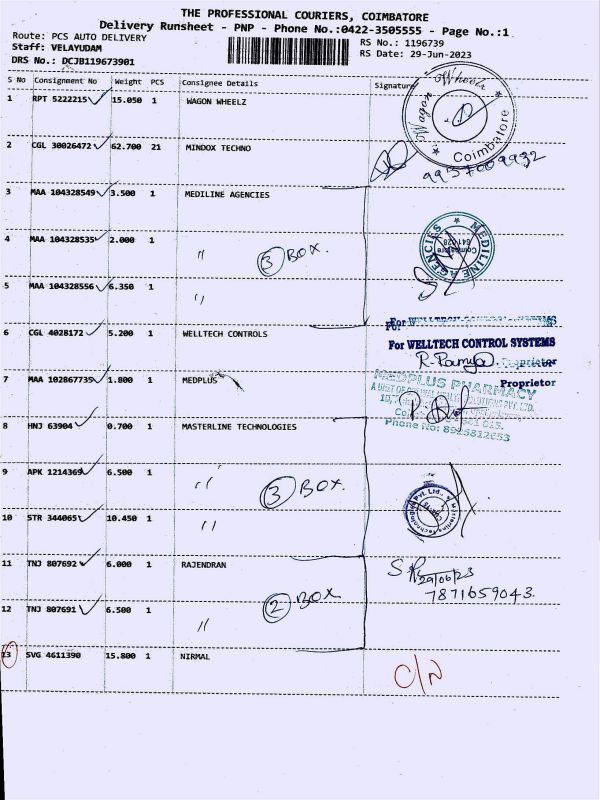 THE PROFESSIONAL COURIERS, COIMBATORE
Delivery Runsheet - PNP - Phone No.:0422-3505555 - Page No.:1
Route: PCS AUTO DELIVERY
RS No.: 1196739
Staff: VELAYUDAM
RS Date: 29-Jun-2023
DRS No.: DCJB119673901
S No Consignment No Weight PCS Consignee Details Signature
1 RPT 5222215 ✓ 15.050 1 WAGON WHEELZ
Wagon Wheelz
Coimbatore
2 CGL 30026472 ✓ 62.700 21 MINDOX TECHNO
9957009932
3 MAA 104328549 ✓ 3.500 1 MEDILINE AGENCIES
4 MAA 104328535 ✓ 2.000 1 〃 3 BOX.
MEDILINE AGENCIES
Coimbatore
5 MAA 104328556 ✓ 6.350 1 〃
For WELLTECH CONTROL SYSTEMS
6 CGL 4028172 ✓ 5.200 1 WELLTECH CONTROLS
For WELLTECH CONTROL SYSTEMS
R. Ramya
Proprietor
7 MAA 102867735 ✓ 1.800 1 MEDPLUS
Proprietor
MEDPLUS PHARMACY
Phone No: 8925812653
8 HNJ 63904 ✓ 0.700 1 MASTERLINE TECHNOLOGIES
9 APK 1214369 ✓ 6.500 1 〃 3 BOX.
10 STR 344065 ✓ 10.450 1 〃
11 TNJ 807692 ✓ 6.000 1 RAJENDRAN
29/06/23
7871659043.
12 TNJ 807691 ✓ 6.500 1 〃 2 BOX
13 SVG 4611390 15.800 1 NIRMAL
C/N